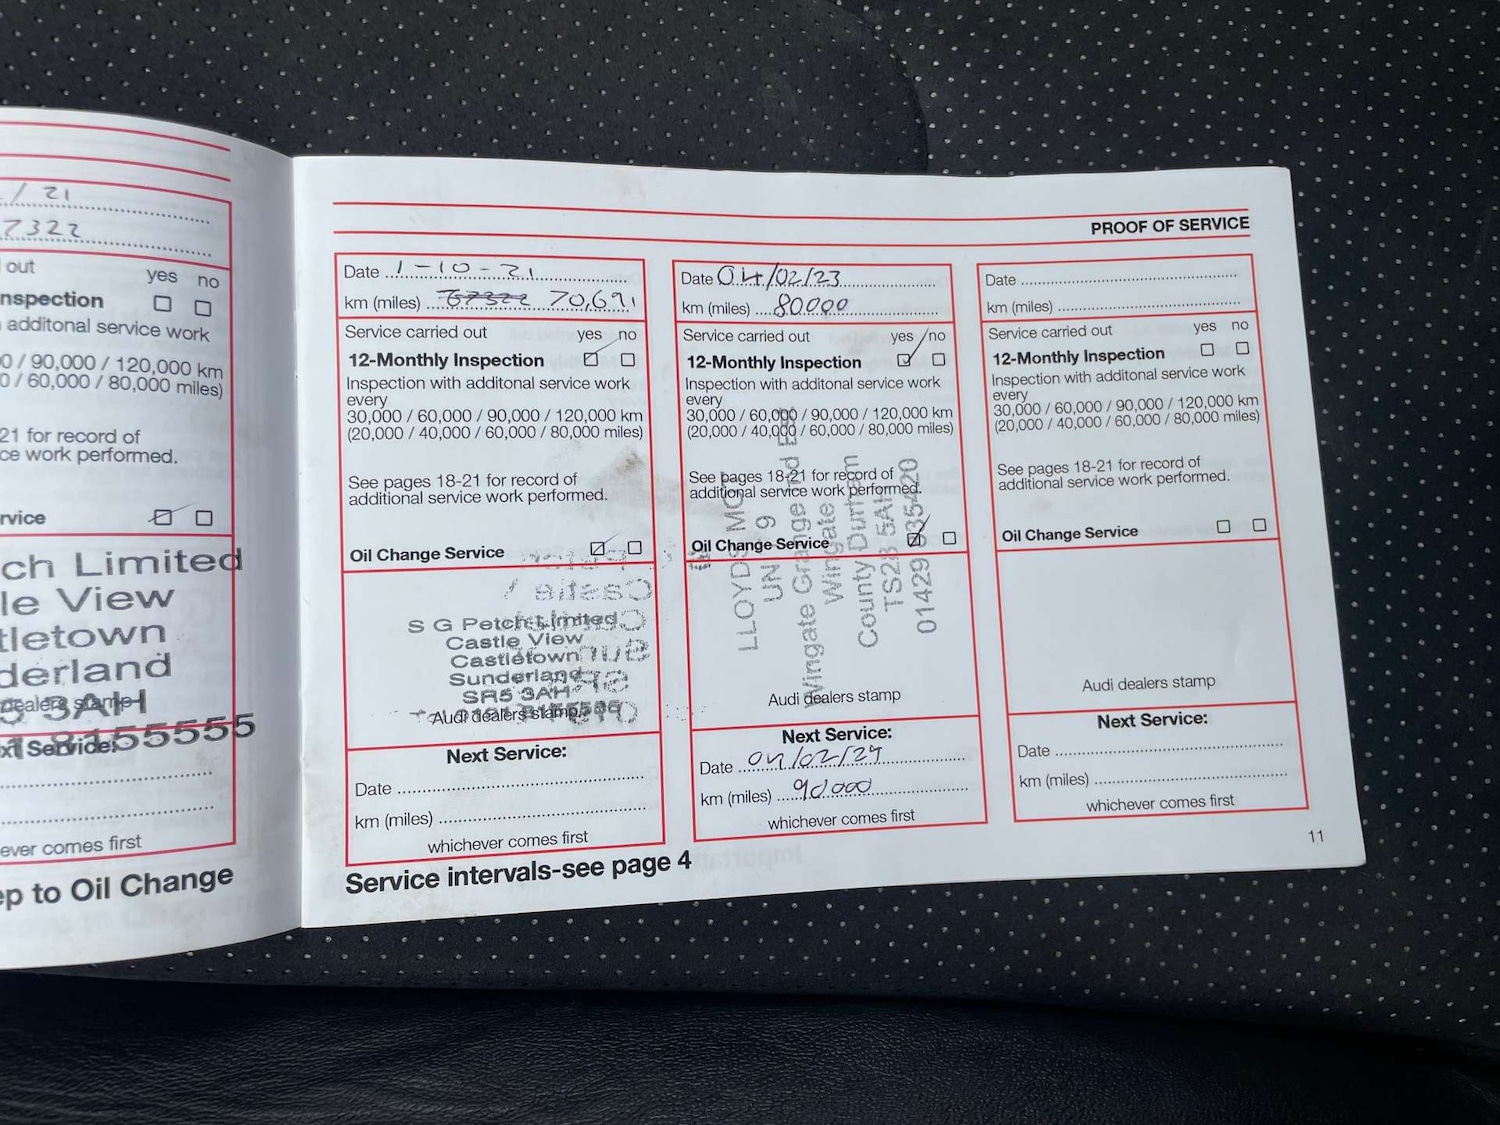 / 21
7322
out
yes no
nspection
additonal service work
0 / 90,000 / 120,000 km
0 / 60,000 / 80,000 miles)
21 for record of
ce work performed.
rvice
ch Limited
le View
tletown
derland
5 3AH
dealers stamp
8155555
xt Service:
ever comes first
ep to Oil Change
PROOF OF SERVICE
Date 1-10-21
km (miles) 67322 70,691
Service carried out yes no
12-Monthly Inspection
Inspection with additonal service work
every
30,000 / 60,000 / 90,000 / 120,000 km
(20,000 / 40,000 / 60,000 / 80,000 miles)
See pages 18-21 for record of
additional service work performed.
Oil Change Service
S G Petch Limited
Castle View
Castletown
Sunderland
SR5 3AH
Audi dealers stamp
Next Service:
Date
km (miles)
whichever comes first
Service intervals-see page 4
Date 04/02/23
km (miles) 80000
Service carried out yes no
12-Monthly Inspection
Inspection with additonal service work
every
30,000 / 60,000 / 90,000 / 120,000 km
(20,000 / 40,000 / 60,000 / 80,000 miles)
See pages 18-21 for record of
additional service work performed.
Oil Change Service
LLOYDS MOT
UN 9
Wingate Grange Ind Est
Wingate
County Durham
TS28 5AH
Audi dealers stamp
Next Service:
Date 04/02/24
km (miles) 90,000
whichever comes first
Date
km (miles)
Service carried out yes no
12-Monthly Inspection
Inspection with additonal service work
every
30,000 / 60,000 / 90,000 / 120,000 km
(20,000 / 40,000 / 60,000 / 80,000 miles)
See pages 18-21 for record of
additional service work performed.
Oil Change Service
Audi dealers stamp
Next Service:
Date
km (miles)
whichever comes first
11